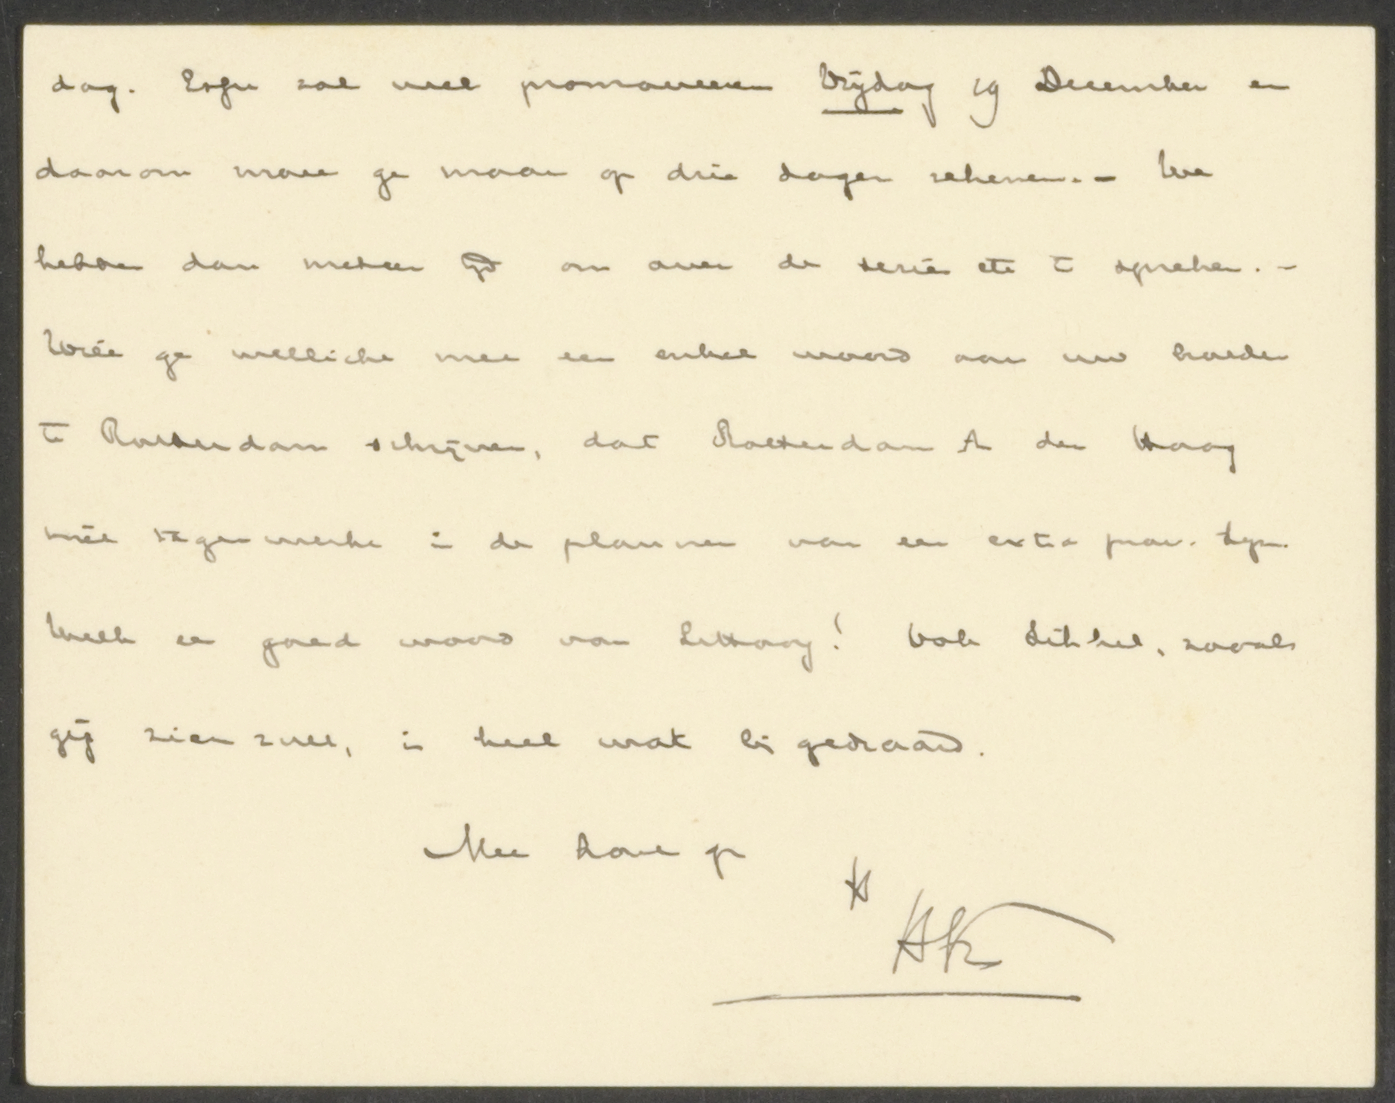 dag. zal wel promoveeren Vrijdag 19 December en
daarom moet ge maar op drie dagen rekenen. – We
hebben dan meteen tijd om over de serie etc te spreken. –
Wilt ge wellicht met een enkel woord aan uw broeder
te Rotterdam schrijven, dat Rotterdam & den Haag
niet tegenwerke in de plannen van een extra prov. syn.
Welk een goed woord van ! Ook Sikkel, zooals
gij zien zult, is heel wat bijgedraaid.
Met hand gr
H
HK